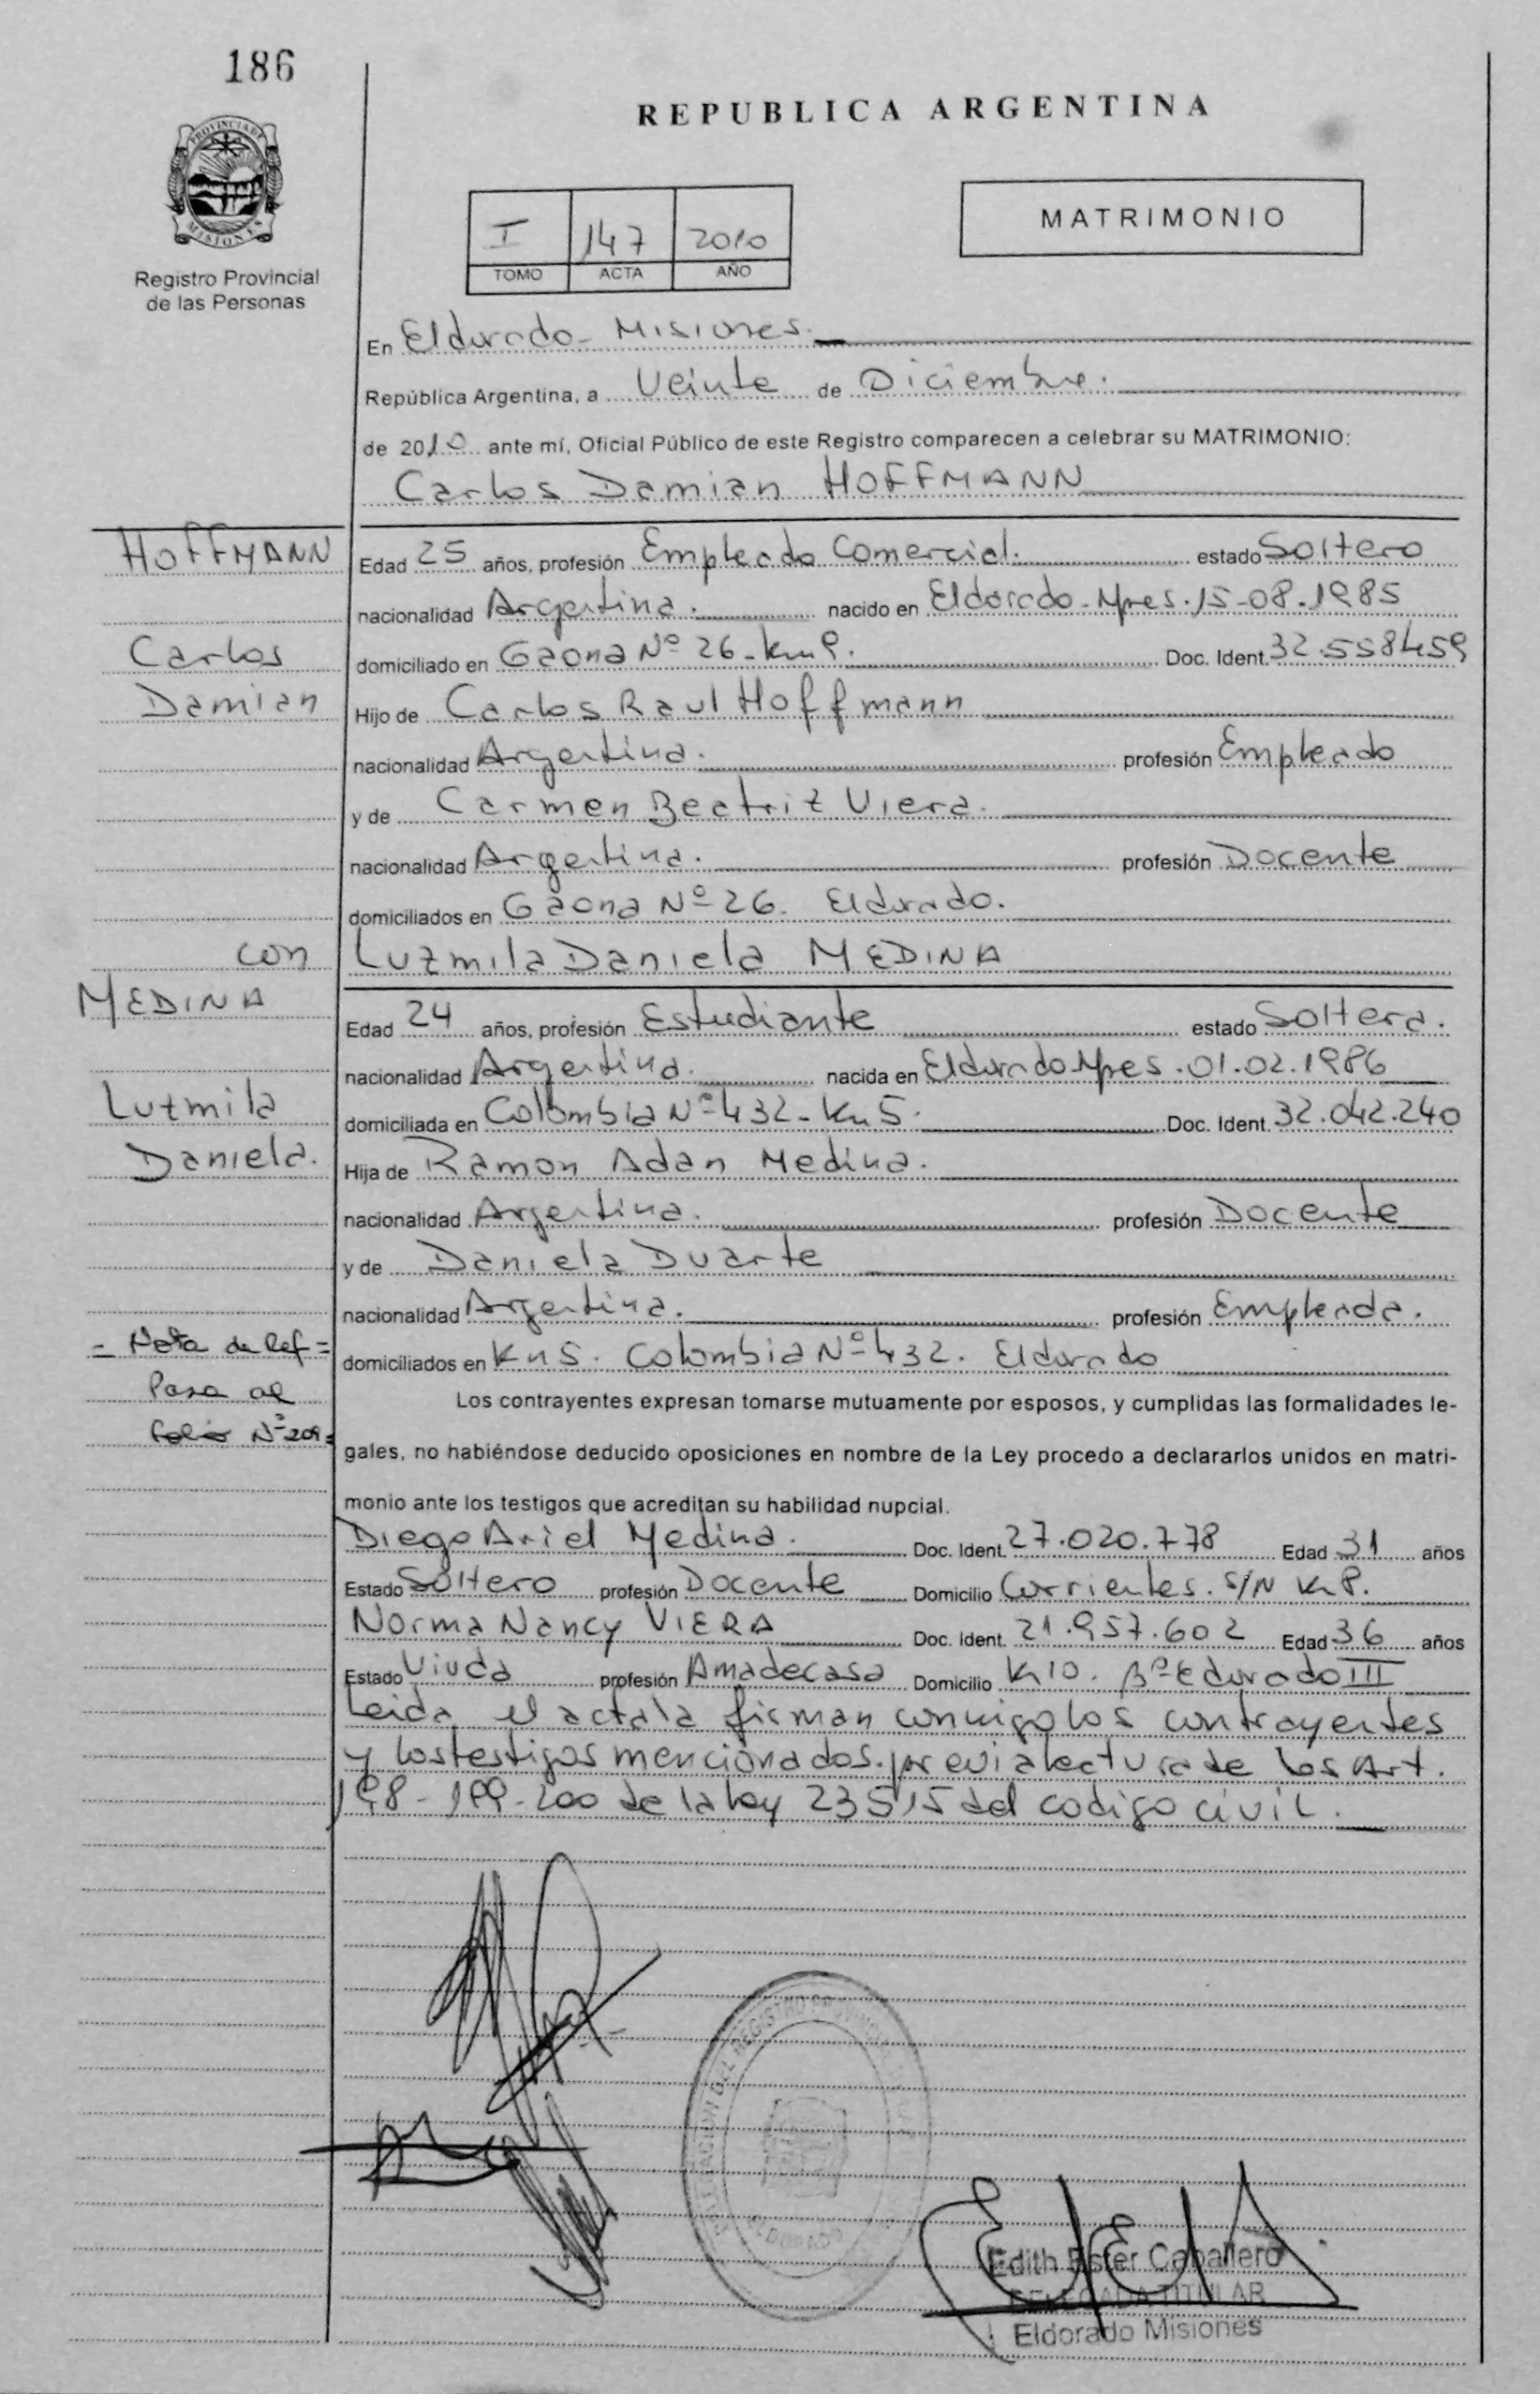 186
REPUBLICA ARGENTINA
PROVINCIA DE
MISIONES
Registro Provincial
de las Personas
I 147 2010
TOMO ACTA AÑO
MATRIMONIO
En Eldorado - Misiones.
República Argentina, a Veinte de Diciembre.
de 2010 ante mí, Oficial Público de este Registro comparecen a celebrar su MATRIMONIO:
Carlos Damian HOFFMANN
HOFFMANN
Edad 25 años, profesión Empleado Comercial. estado Soltero
nacionalidad Argentina. nacido en Eldorado - Mnes. 15-08.1985
Carlos
domiciliado en Gaona Nº 26 - Km 9. Doc. Ident. 32.558459
Damian
Hijo de Carlos Raul Hoffmann
nacionalidad Argentina. profesión Empleado
y de Carmen Beatriz Viera.
nacionalidad Argentina. profesión Docente
domiciliados en Gaona Nº 26. Eldorado.
con
Luzmila Daniela MEDINA
MEDINA
Edad 24 años, profesión Estudiante estado Soltera.
nacionalidad Argentina. nacida en Eldorado Mnes. 01.02.1986
Luzmila
domiciliada en Colombia Nº 432 - Km 5. Doc. Ident. 32.042.240
Daniela.
Hija de Ramon Adan Medina.
nacionalidad Argentina. profesión Docente
y de Daniela Duarte
nacionalidad Argentina. profesión Empleada.
= Nota de Ref =
domiciliados en Km 5. Colombia Nº 432. Eldorado
Pasa al
Los contrayentes expresan tomarse mutuamente por esposos, y cumplidas las formalidades le-
folio Nº 209=
gales, no habiéndose deducido oposiciones en nombre de la Ley procedo a declararlos unidos en matri-
monio ante los testigos que acreditan su habilidad nupcial.
Diego Ariel Medina. Doc. Ident. 27.020.778 Edad 31 años
Estado Soltero profesión Docente Domicilio Corrientes. S/N Km 8.
Norma Nancy VIERA Doc. Ident. 21.957.602 Edad 36 años
Estado Viuda profesión Amadecasa Domicilio K 10. Bº Eldorado III
Leida el acta la firman conmigo los contrayentes
y los testigos mencionados. previa lectura de los Art.
198 - 199 - 200 de la ley 23515 del codigo civil.
ELDORADO
Edith Ester Caballero
DELEGADA TITULAR
Eldorado Misiones